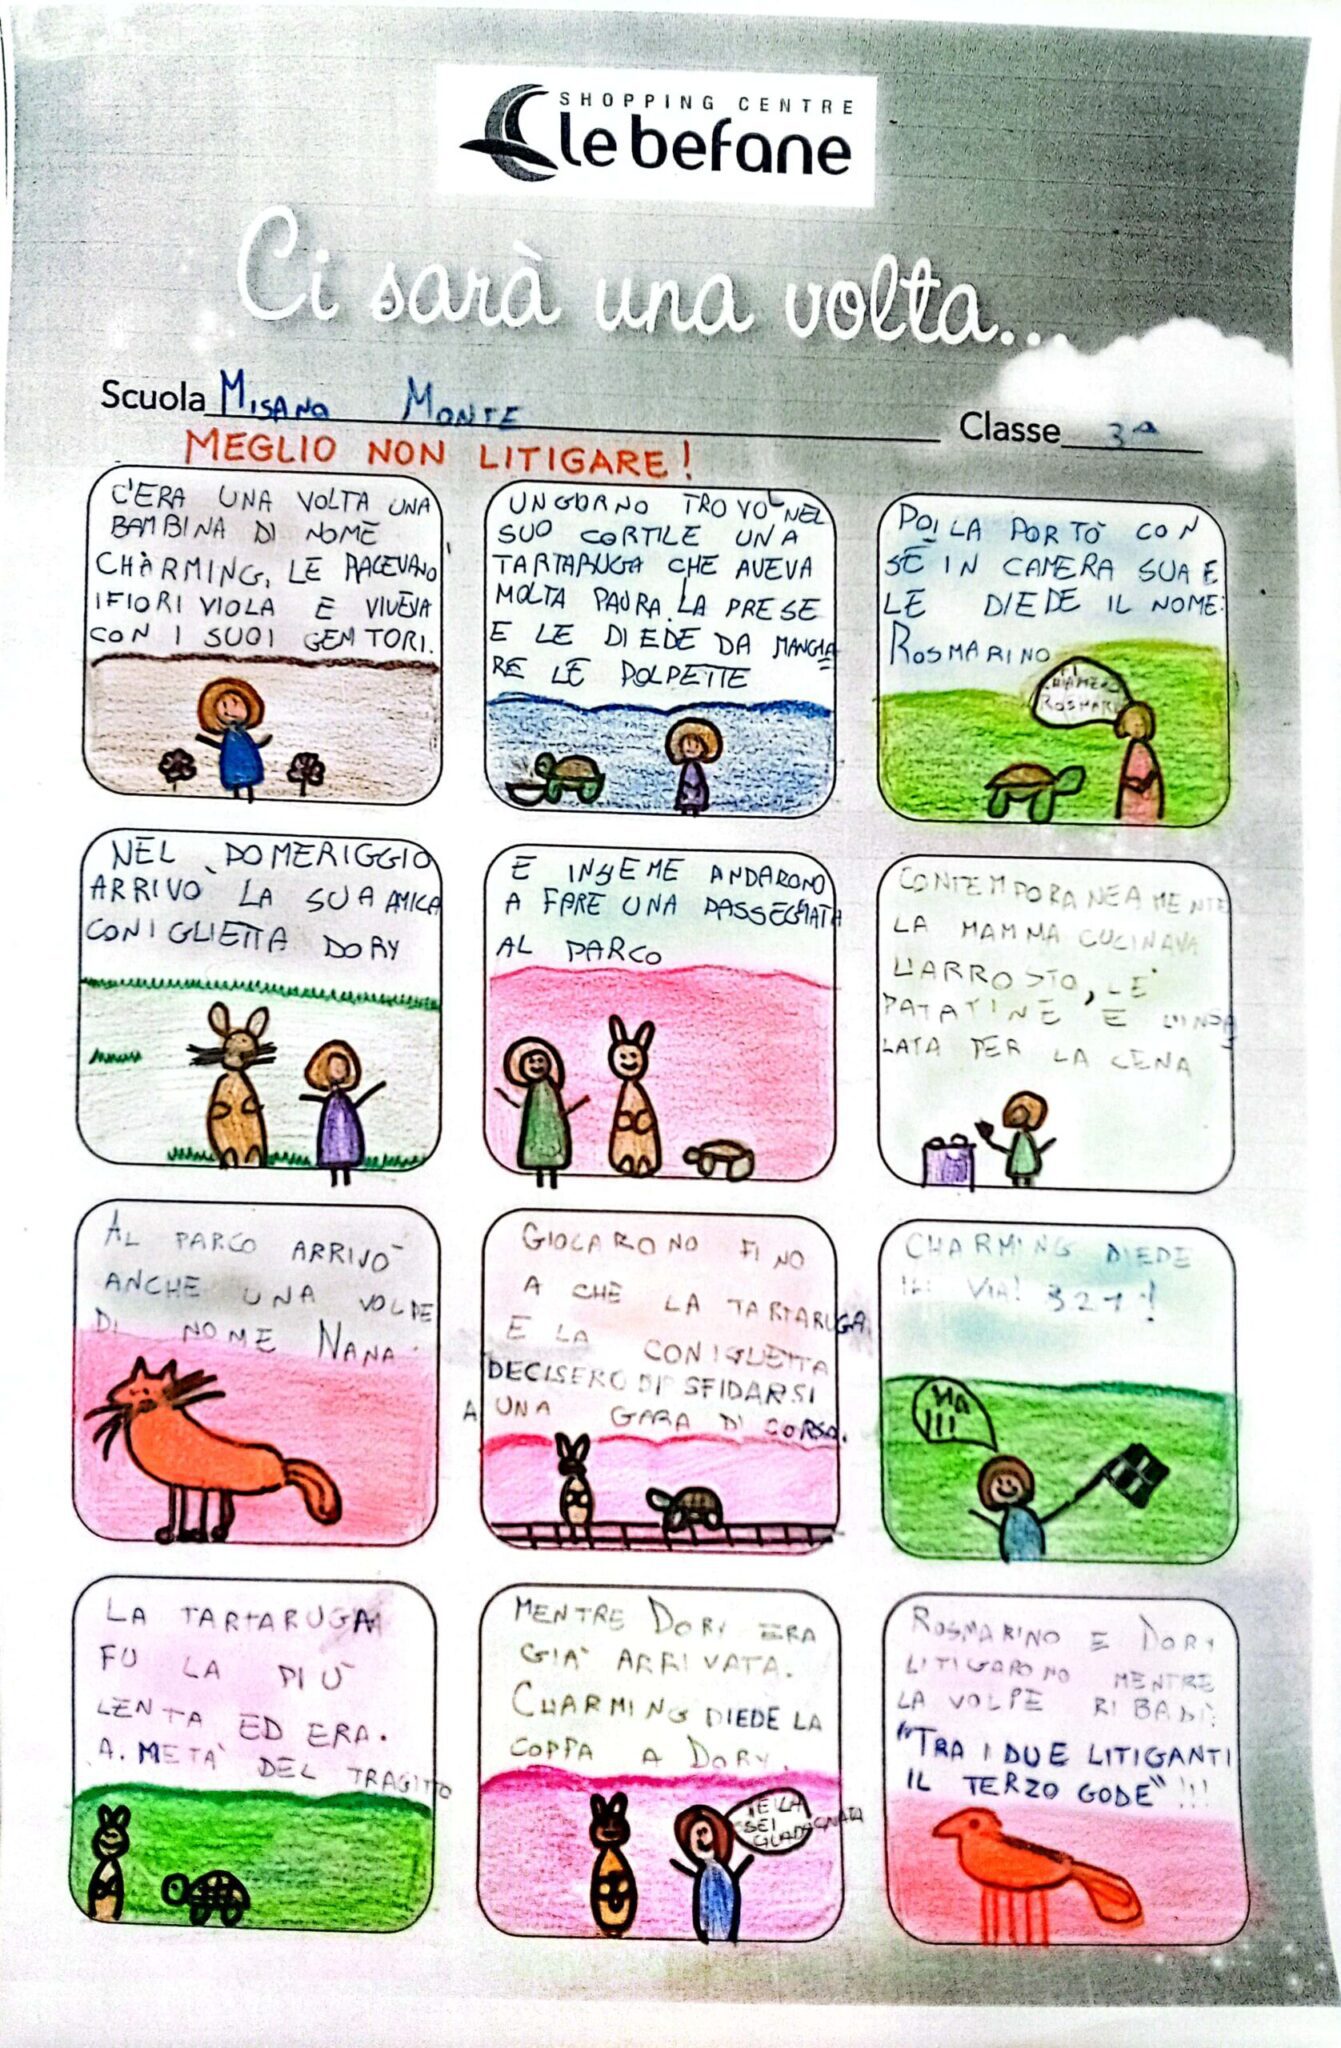 SHOPPING CENTRE
le befane
Ci sarà una volta...
Scuola MISANO MONTE
Classe 3ª
MEGLIO NON LITIGARE!
C'ERA UNA VOLTA UNA
BAMBINA DI NOME
CHARMING, LE PIACEVANO
I FIORI VIOLA E VIVEVA
CON I SUOI GENITORI.
UN GORNO TROVO' NEL
SUO CORTILE UNA
TARTARUGA CHE AVEVA
MOLTA PAURA. LA PRESE
E LE DIEDE DA MANGIA
RE LE POLPETTE
POI LA PORTÒ CON
SÉ IN CAMERA SUA E
LE DIEDE IL NOME:
ROSMARINO
NEL POMERIGGIO
ARRIVO' LA SUA AMICA
CONIGLIETTA DORY
E INSIEME ANDARONO
A FARE UNA PASSEGGIATA
AL PARCO
CONTEMPORANEAMENTE
LA MAMMA CUCINAVA
L'ARROSTO, LE
PATATINE E L'INSA
LATA PER LA CENA
AL PARCO ARRIVO'
ANCHE UNA VOLPE
DI NOME NANA.
GIOCARONO FINO
A CHE LA TARTARUGA
E LA CONIGLIETTA
DECISERO DI SFIDARSI
A UNA GARA DI CORSA.
CHARMING DIEDE
IL VIA! 3 2 1!
!!!
LA TARTARUGA
FU LA PIU'
LENTA ED ERA.
A. META' DEL TRAGITTO
MENTRE DORY ERA
GIA' ARRIVATA.
CHARMING DIEDE LA
COPPA A DORY.
SEI
GUADAGNATA
ROSMARINO E DORY
LITIGARONO MENTRE
LA VOLPE RIBADÌ:
"TRA I DUE LITIGANTI
IL TERZO GODE"!!!